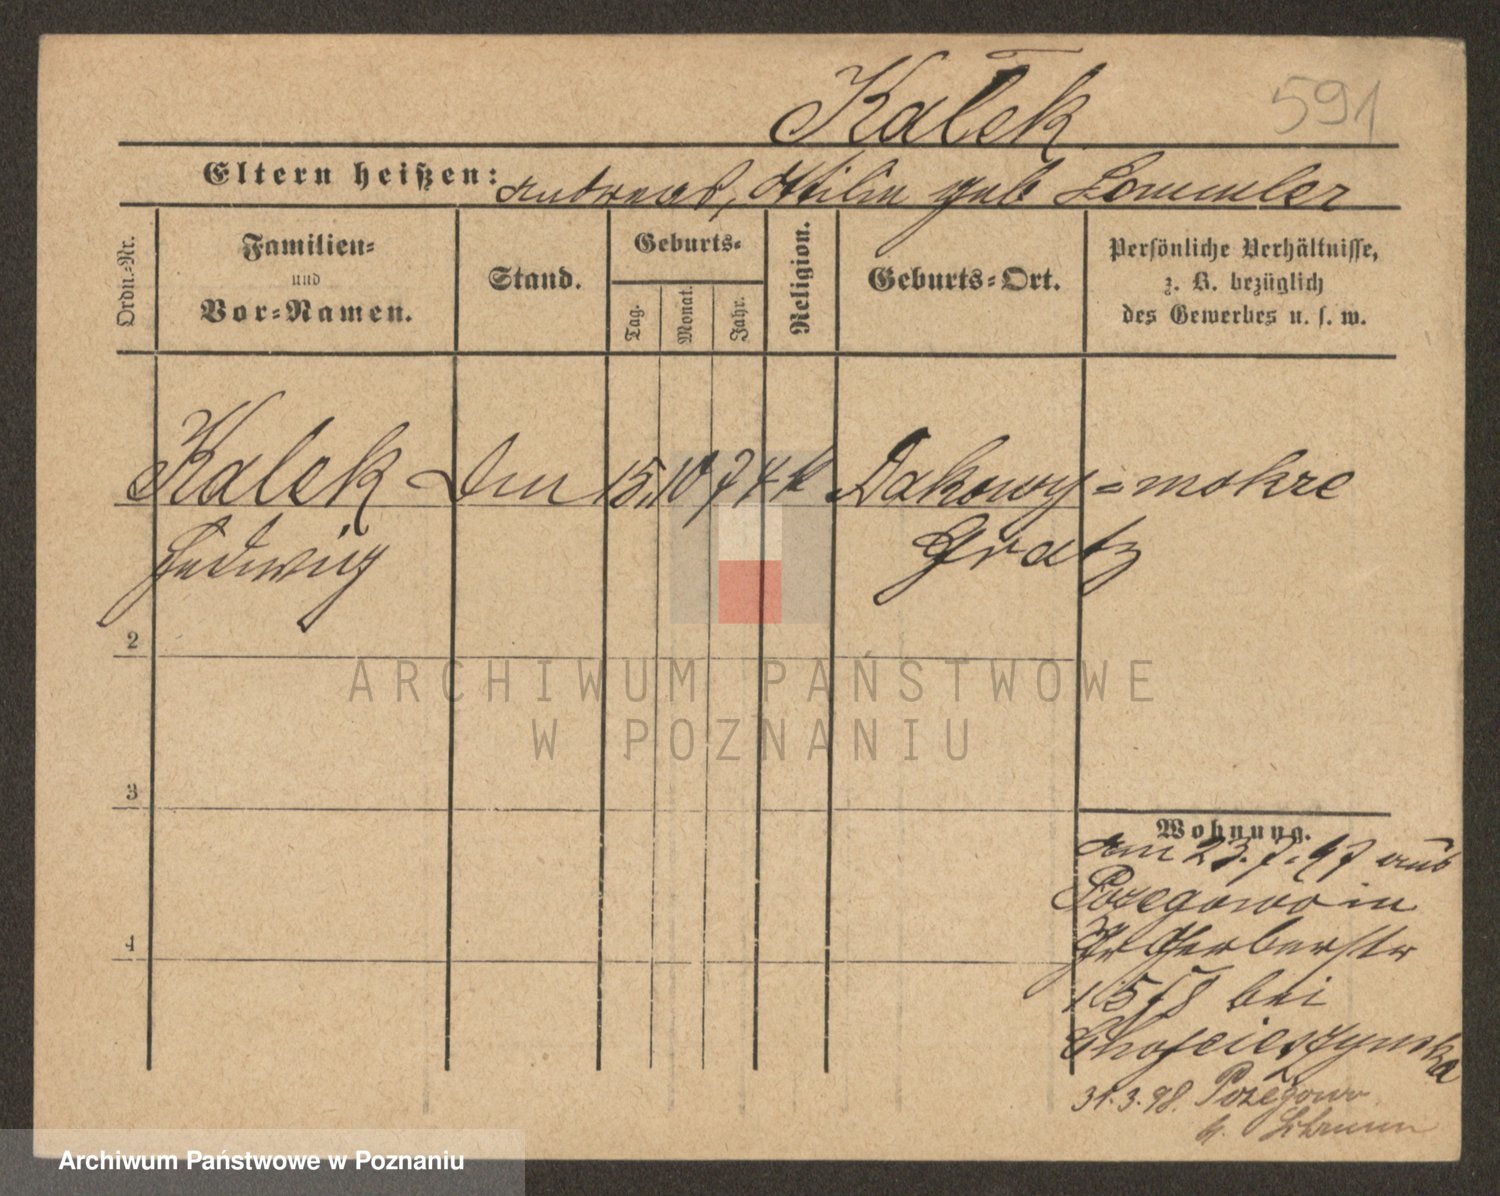 Kalek
591
Eltern heißen: Andreas, Ottilie geb Lommler
Ordn.-Nr.
Familien-
und
Vor-Namen.
Stand.
Geburts-
Tag.
Monat.
Jahr.
Religion.
Geburts-Ort.
Persönliche Verhältnisse,
z. B. bezüglich
des Gewerbes u. s. w.
Kalek
15. 10 74 k Dakowy=mokre
Hedwig
Gratz
2
3
4
Wohnung.
am 23.7.97 aus
Pozegowo in
Gr Gerberstr
bei
Chofcieszynska
31.3.98. Pożegowo
ARCHIWUM PAŃSTWOWE
W POZNANIU
Archiwum Państwowe w Poznaniu